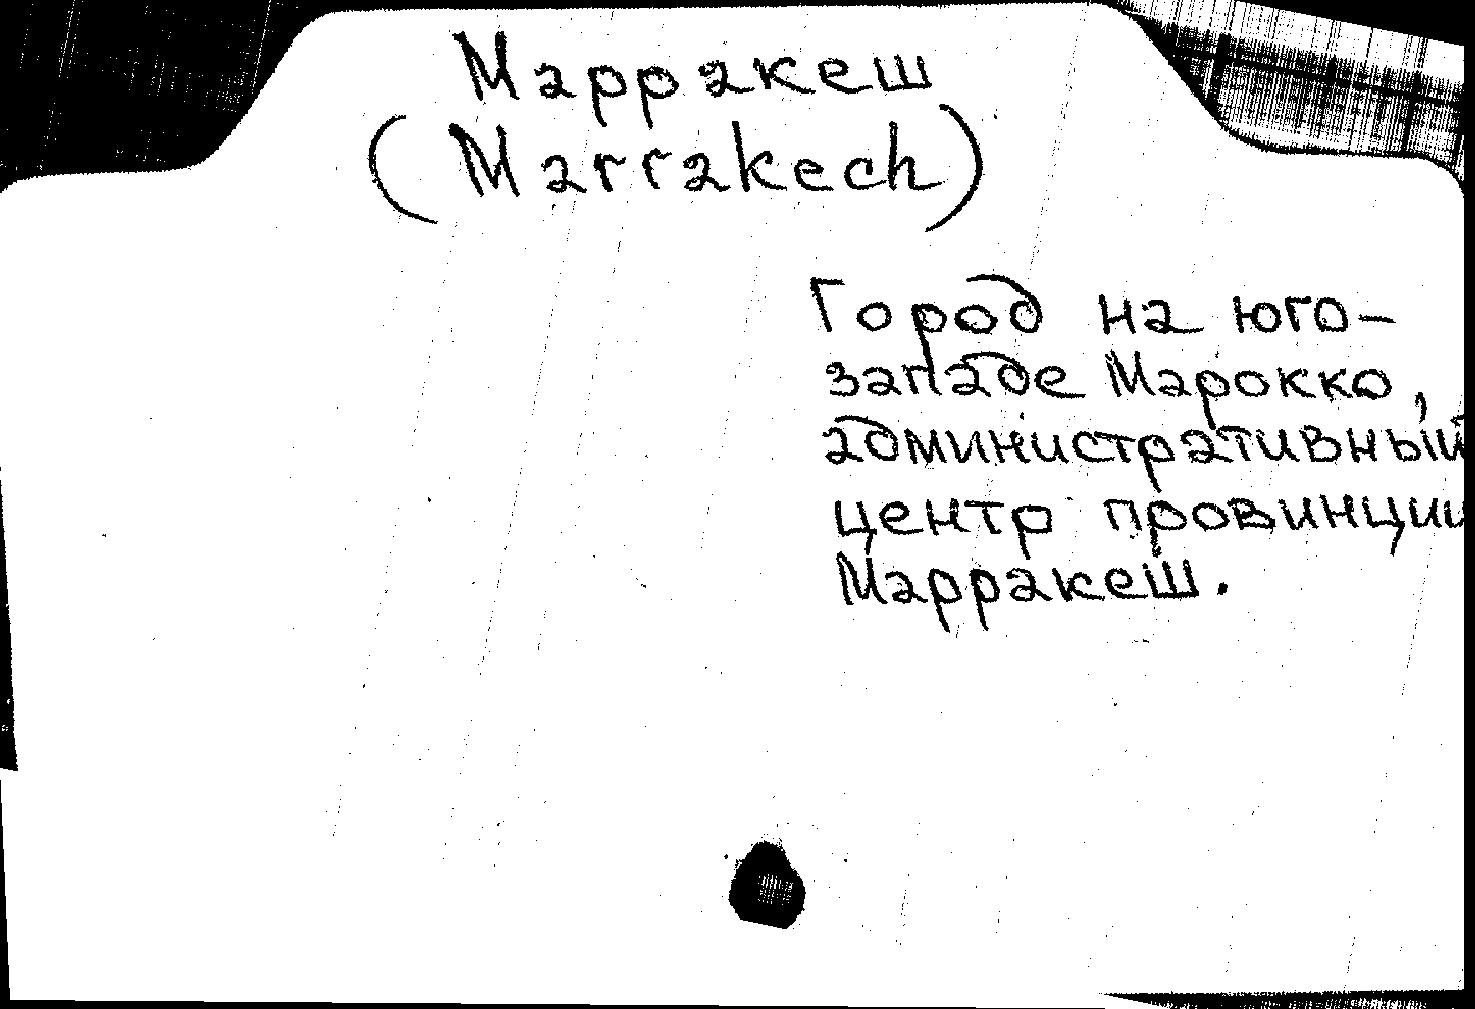 Марракеш
(Marrakech)
Город на юго-
западе Марокко,
административный
центр провинции
Марракеш.